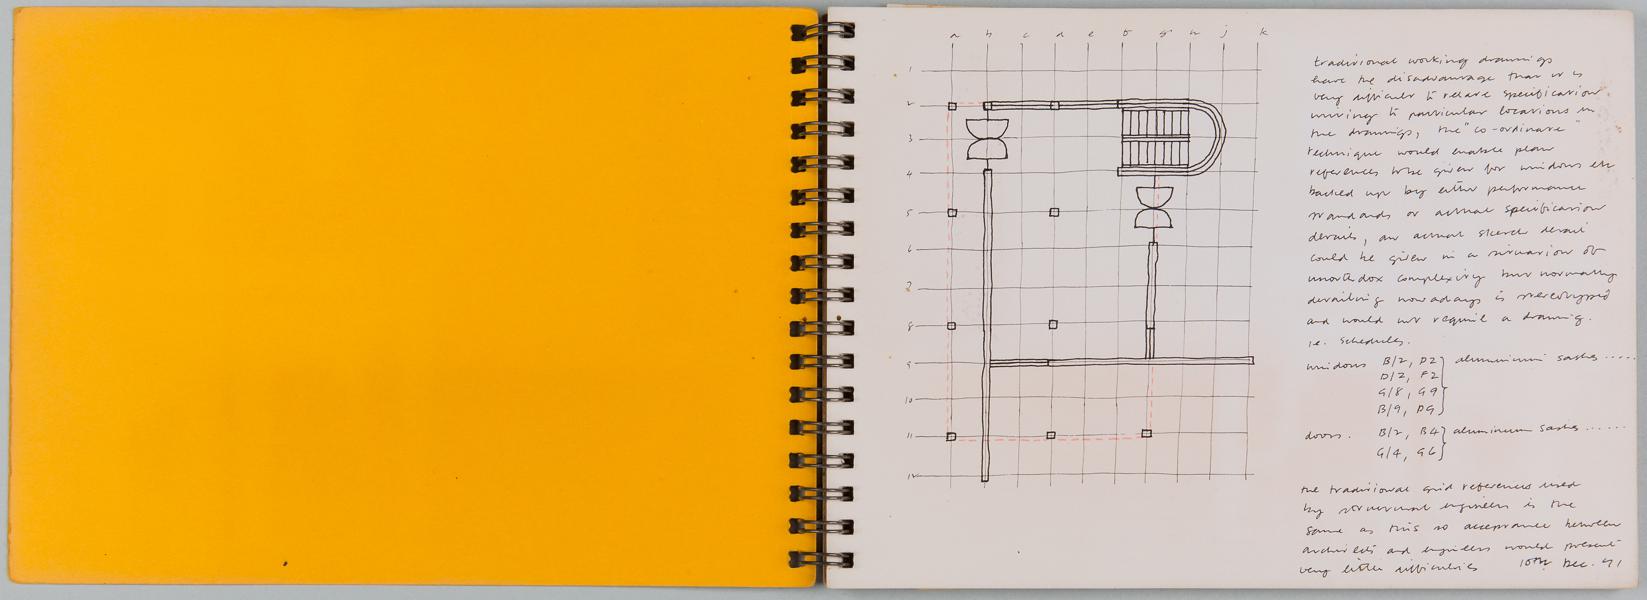 a b c d e f g h j k
1
2
3
4
5
6
7
8
9
10
11
12
traditional working drawings
have the disadvantage that it is
very difficult to relate specification
writing to particular locations in
the drawings, the "co-ordinate"
technique would enable plan
references to be given for windows etc
backed up by either performance
standards or actual specification
details, an actual sketch detail
could be given in a situation of
unorthodox complexity but normally
detailing nowadays is stereotyped
and would not require a drawing.
ie. schedules.
windows B/2, D2 } aluminium sashes .....
D/2, F2
G/8, G9
B/9, D9
doors. B/2, B4 } aluminium sashes ......
G/4, G6
the traditional grid references used
by structural engineers is the
same as this so acceptance between
architects and engineers would present
very little difficulties 10th Dec. 71